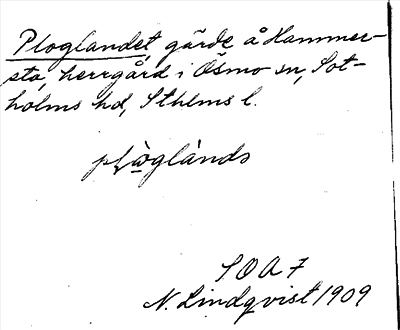 Ploglandet, gärde å Hammer-
sta, herrgård i Ösmo sn, Sot-
holms hd, Sthlms l.
SOA 7
N. Lindqvist 1909